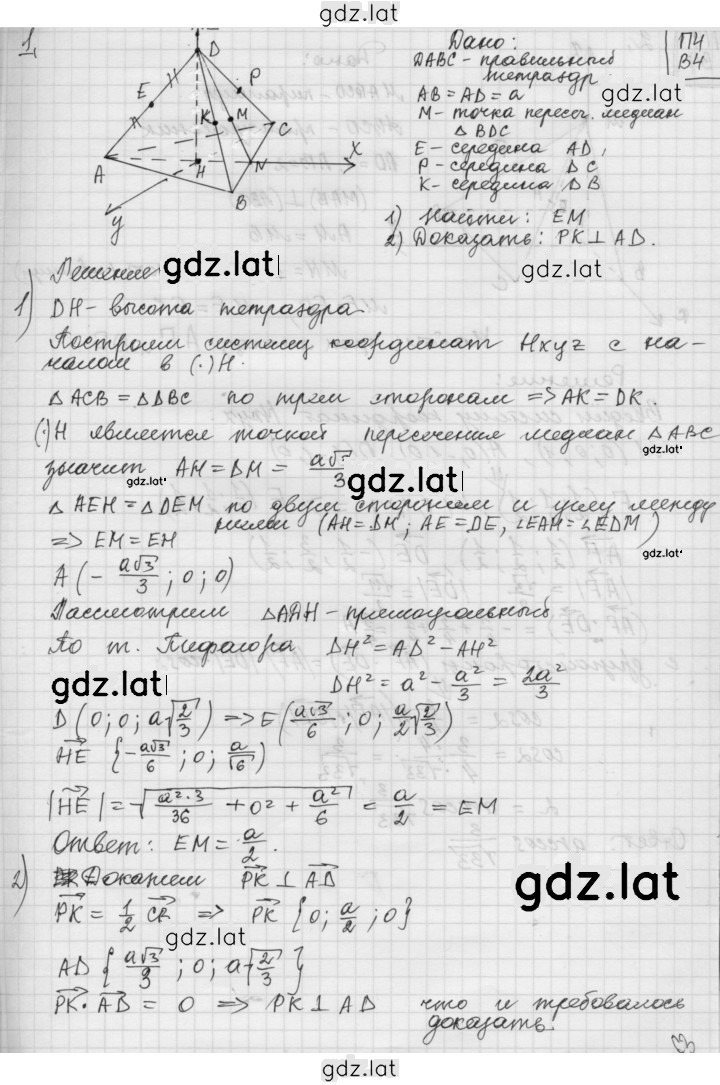 gdz.lat
1.
Дано:
П4
В4
DABC - правильный
тетраэдр
AB = AD = a
gdz.lat
M - точка пересеч. медиан
△ BDC
E - середина AD,
P - середина DC
K - середина DB
1) Найти: EM
2) Доказать: PK ⊥ AD.
D
E
P
K
M
C
A
H
N
X
B
y
Решение
gdz.lat
1) DH - высота тетраэдра
Построим систему координат Hxyz с на-
чалом в (·)H.
△ ACB = △DBC по трем сторонам => AK = DK.
(·)H является точкой пересечения медиан △ABC
gdz.lat
значит AH = DM = a√3/3
gdz.lat
△ AEH = △DEM по двум сторонам и углу между
ними (AH = DM; AE = DE, ∠EAH = ∠EDM)
=> EM = EH
gdz.lat
A (- a√3/3 ; 0 ; 0)
Рассмотрим △ADH - прямоугольный
По т. Пифагора DH² = AD² - AH²
gdz.lat
DH² = a² - a²/3 = 2a²/3
D (0; 0; a√2/3) => E(a√3/6 ; 0 ; a/2 √2/3)
HE {- a√3/6 ; 0 ; a/√6)
|HE| = √(a²·3/36 + 0² + a²/6) = a/2 = EM
Ответ: EM = a/2.
gdz.lat
2) Докажем PK ⊥ AD
PK = 1/2 CB => PK {0; a/2 ; 0}
gdz.lat
AD { a√3/3 ; 0 ; a√2/3 }
PK · AD = 0 => PK ⊥ AD что и требовалось
доказать.
gdz.lat